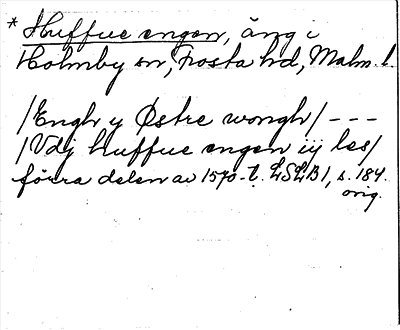 * Huffue engen, äng i
Holmby sn, Frosta hd, Malm. l.
/Engh y Østre wongh/ - - -
/Vdj huffue engen iij les/
förra delen av 1570-t. LSLB 1, s. 184.
orig.